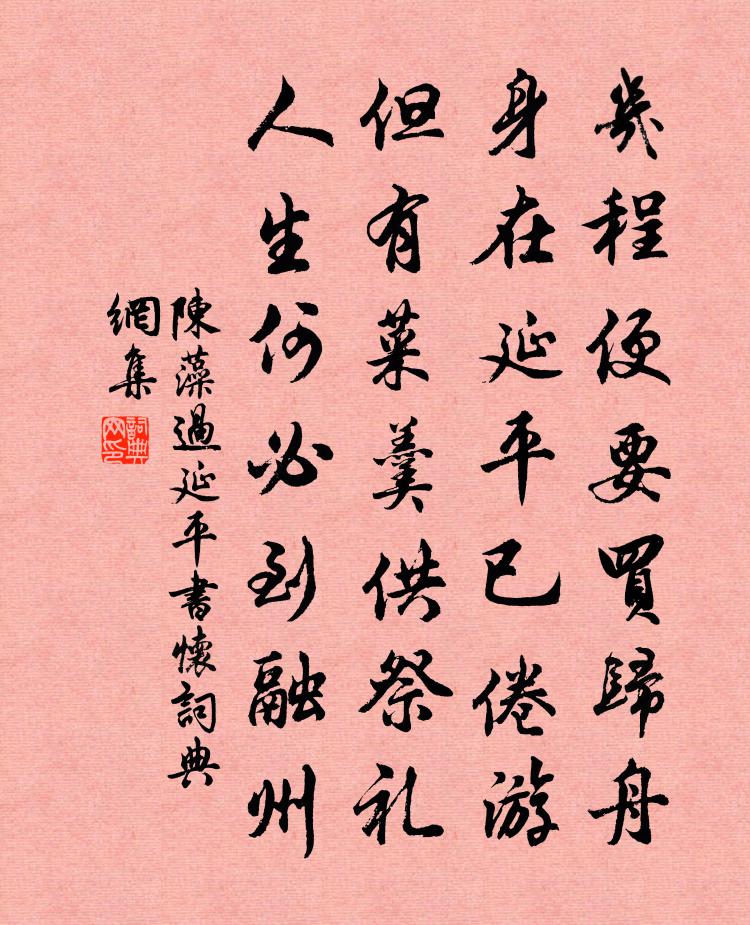 幾程便要買歸舟
身在延平已倦游
但有菜羹供祭礼
人生何必到融州
陳藻過延平書懷詞典
網集
詞典
网印